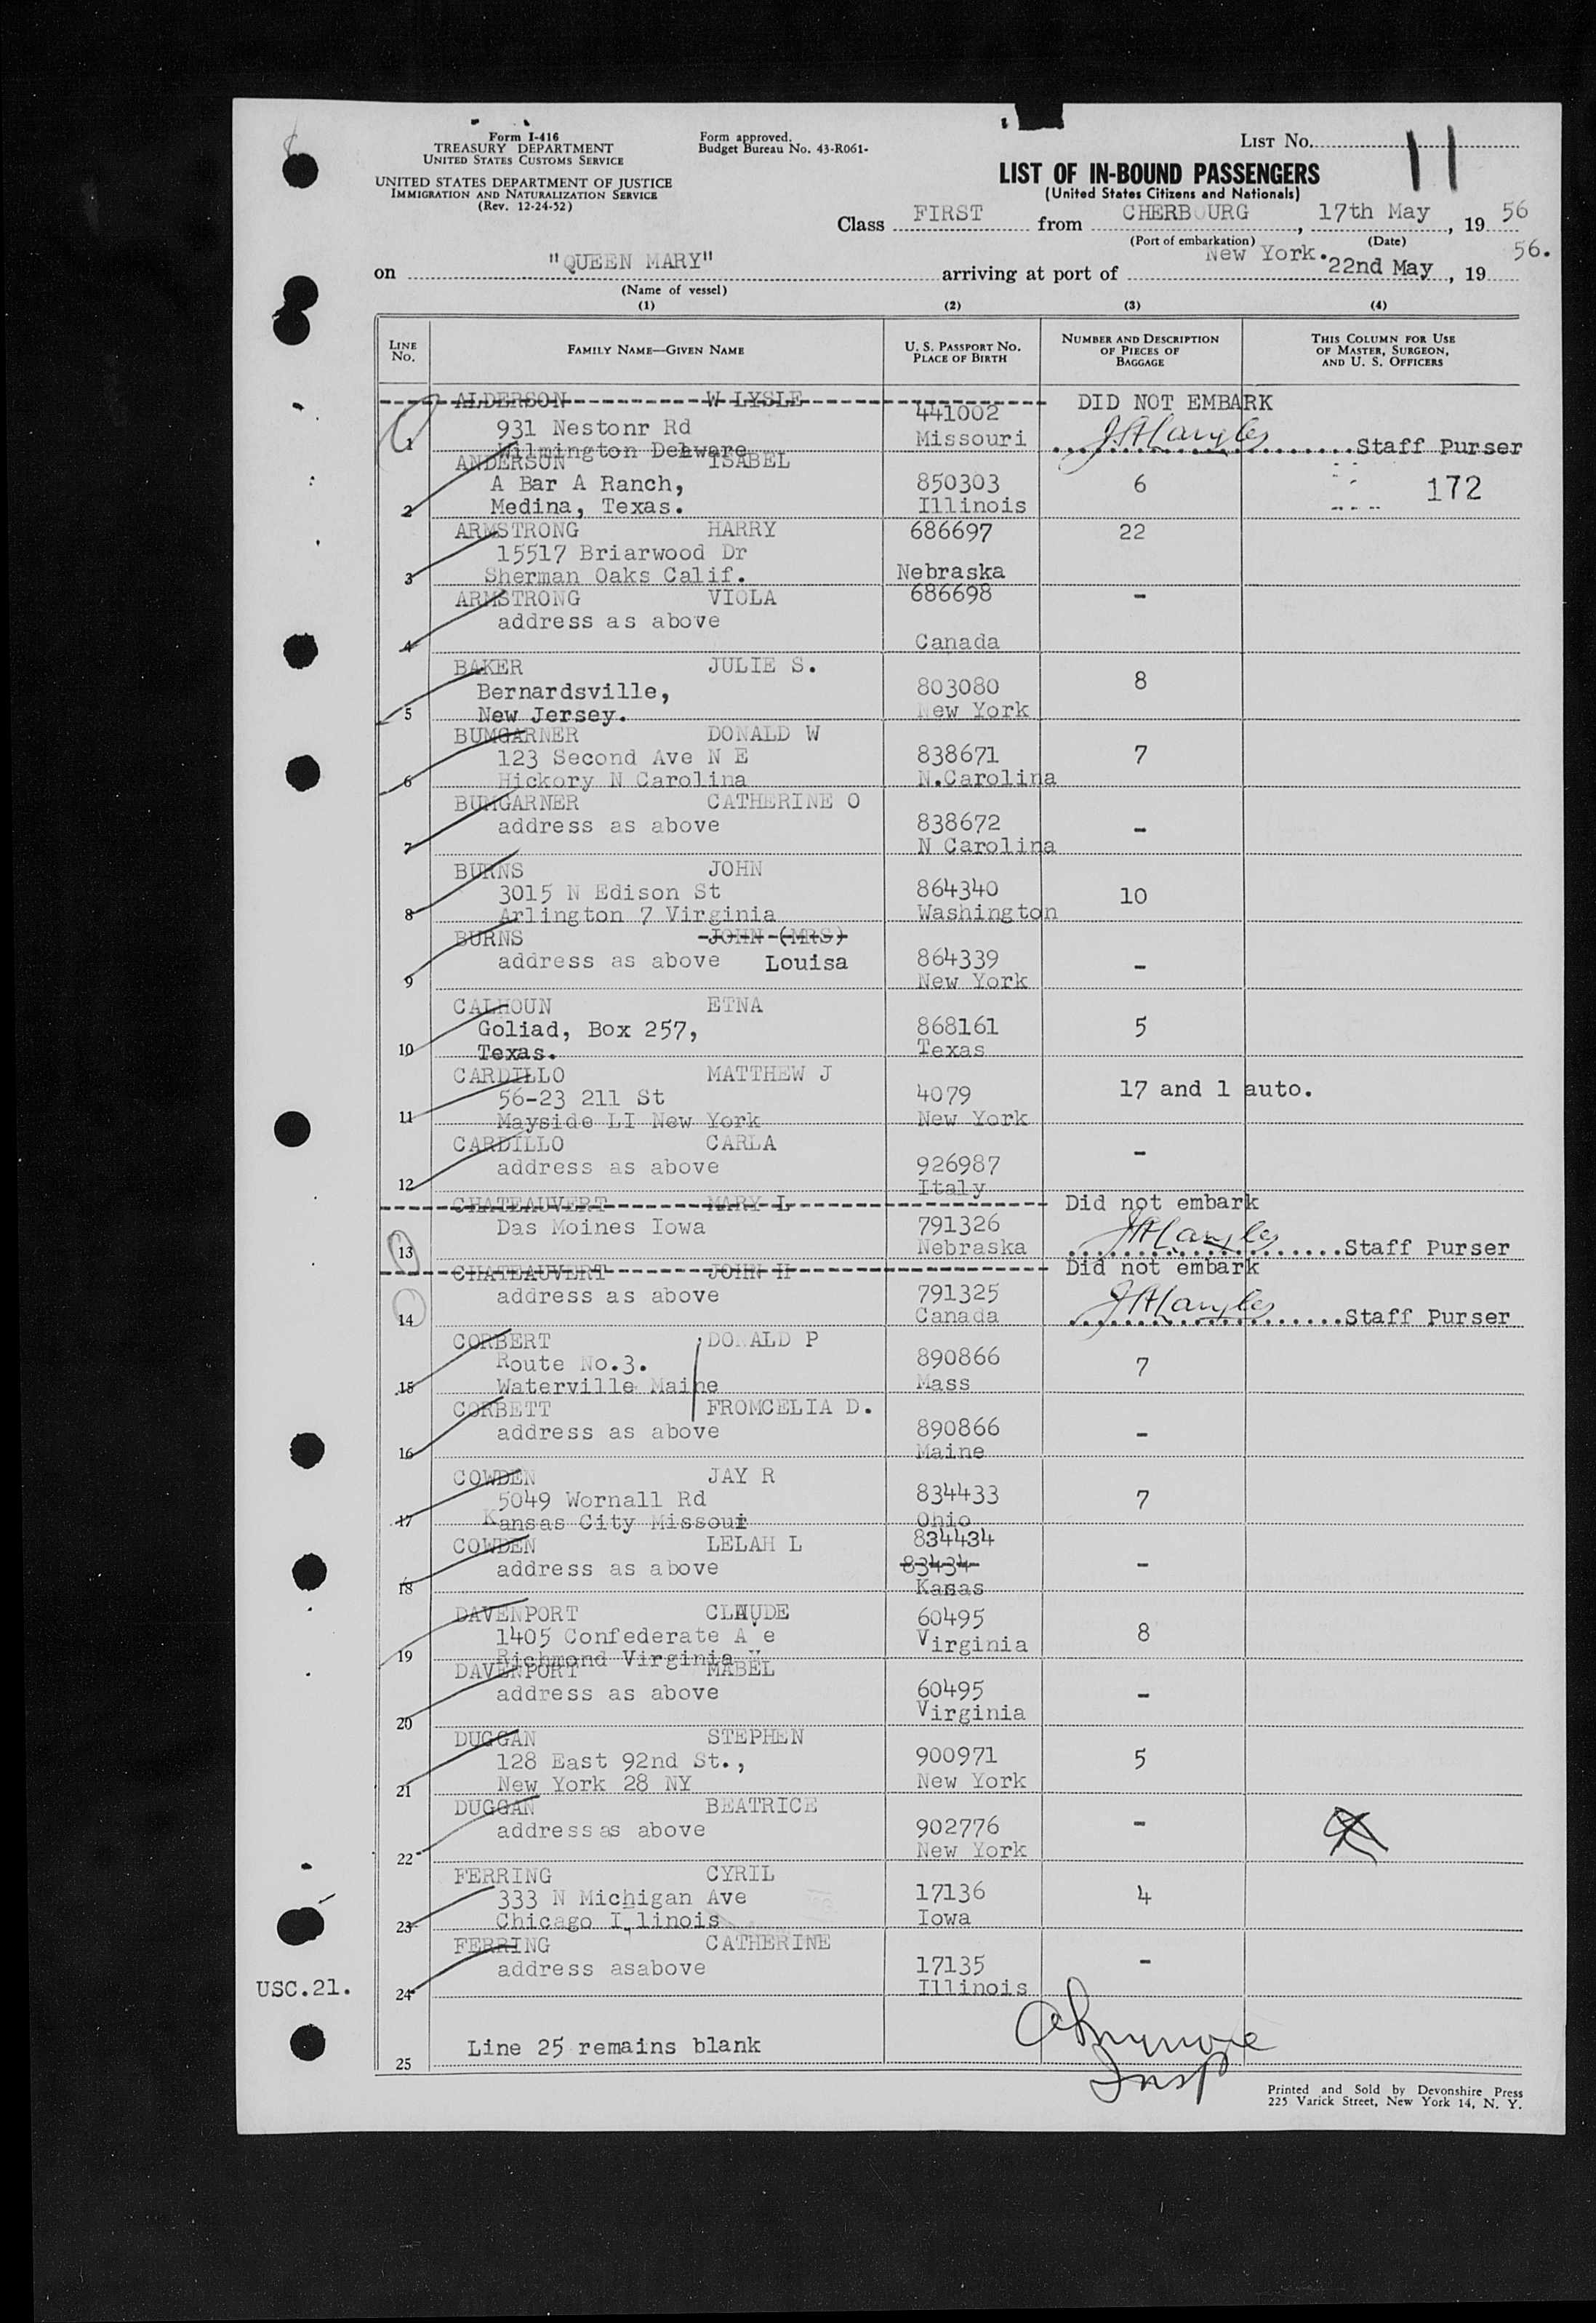 Form I-416
TREASURY DEPARTMENT
UNITED STATES CUSTOMS SERVICE
UNITED STATES DEPARTMENT OF JUSTICE
IMMIGRATION AND NATURALIZATION SERVICE
(Rev. 12-24-52)
Form approved.
Budget Bureau No. 43-R061-
LIST No. 11
LIST OF IN-BOUND PASSENGERS
(United States Citizens and Nationals)
Class FIRST from CHERBOURG, 17th May, 19 56
(Port of embarkation) (Date)
on "QUEEN MARY" arriving at port of New York. 22nd May, 19 56.
(Name of vessel)
(1) (2) (3) (4)
LINE No. FAMILY NAME—GIVEN NAME U. S. PASSPORT NO. PLACE OF BIRTH NUMBER AND DESCRIPTION OF PIECES OF BAGGAGE THIS COLUMN FOR USE OF MASTER, SURGEON, AND U. S. OFFICERS
ALDERSON W LYSLE 441002 DID NOT EMBARK
931 Nestonr Rd
1 Wilmington Delaware Missouri Staff Purser
ANDERSON ISABEL
A Bar A Ranch, 850303 6 172
2 Medina, Texas. Illinois
ARMSTRONG HARRY 686697 22
15517 Briarwood Dr
3 Sherman Oaks Calif. Nebraska
ARMSTRONG VIOLA 686698 -
address as above
4 Canada
BAKER JULIE S.
Bernardsville, 803080 8
5 New Jersey. New York
BUMGARNER DONALD W
123 Second Ave N E 838671 7
6 Hickory N Carolina N.Carolina
BUMGARNER CATHERINE O
address as above 838672 -
7 N Carolina
BURNS JOHN
3015 N Edison St 864340 10
8 Arlington 7 Virginia Washington
BURNS JOHN (MRS)
address as above Louisa 864339 -
9 New York
CALHOUN ETNA
Goliad, Box 257, 868161 5
10 Texas. Texas
CARDILLO MATTHEW J
56-23 211 St 4079 17 and 1 auto.
11 Mayside LI New York New York
CARDILLO CARLA
address as above 926987 -
12 Italy
CHATEAUVERT MARY L Did not embark
Das Moines Iowa 791326
13 Nebraska Staff Purser
CHATEAUVERT JOHN H Did not embark
address as above 791325
14 Canada Staff Purser
CORBERT DONALD P
Route No.3. 890866 7
15 Waterville Maine Mass
CORBETT FROMCELIA D.
address as above 890866 -
16 Maine
COWDEN JAY R
5049 Wornall Rd 834433 7
17 Kansas City Missoui Ohio
COWDEN LELAH L 834434
address as above 83434 -
18 Kanas
DAVENPORT CLAUDE 60495
1405 Confederate A e Virginia 8
19 Richmond Virginia
DAVENPORT MABEL
address as above 60495 -
20 Virginia
DUGGAN STEPHEN
128 East 92nd St., 900971 5
21 New York 28 NY New York
DUGGAN BEATRICE
address as above 902776 -
22 New York
FERRING CYRIL
333 N Michigan Ave 17136 4
23 Chicago Illinois Iowa
FERRING CATHERINE
address asabove 17135 -
USC.21. 24 Illinois
25 Line 25 remains blank
Insp
Printed and Sold by Devonshire Press
225 Varick Street, New York 14, N. Y.